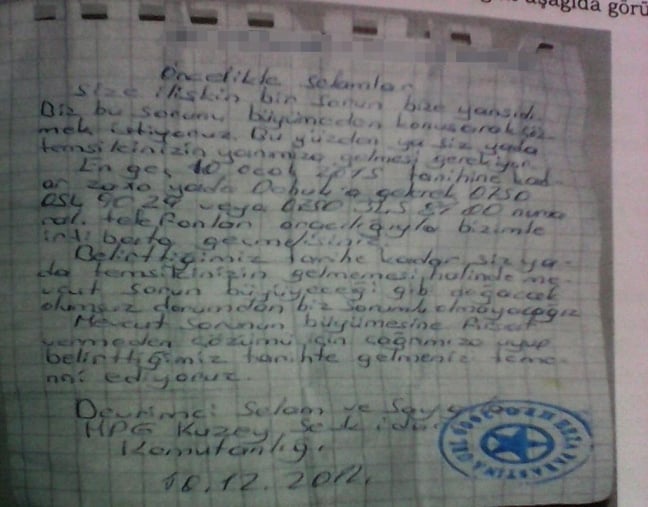 aşağıda görü
Öncelikle selamlar
size ilişkin bir sorun bize yansıdı.
Biz bu sorunu büyümeden konuşarak çöz-
mek istiyoruz. Bu yüzden ya siz yada
temsilcinizin yanımıza gelmesi gerekiyor.
En geç 10 ocak 2015 tarihine kad-
ar yada gelerek 0750
veya numa-
ralı telefonlar aracılığıyla bizimle
irtibata geçmelisiniz.
Belirttiğimiz tarihe kadar siz ya-
da temsilcinizin gelmemesi halinde me-
vcut sorun büyüyeceği gibi doğacak
olumsuz durumdan biz sorumlu olmayacağız
Mevcut sorunun büyümesine fırsat
vermeden çözümü için çağrımıza uyup
belirttiğimiz tarihte gelmeniz teme-
nni ediyoruz.
Devrimci Selam ve
HPG Kuzey
Komutanlığı
10.12.2014